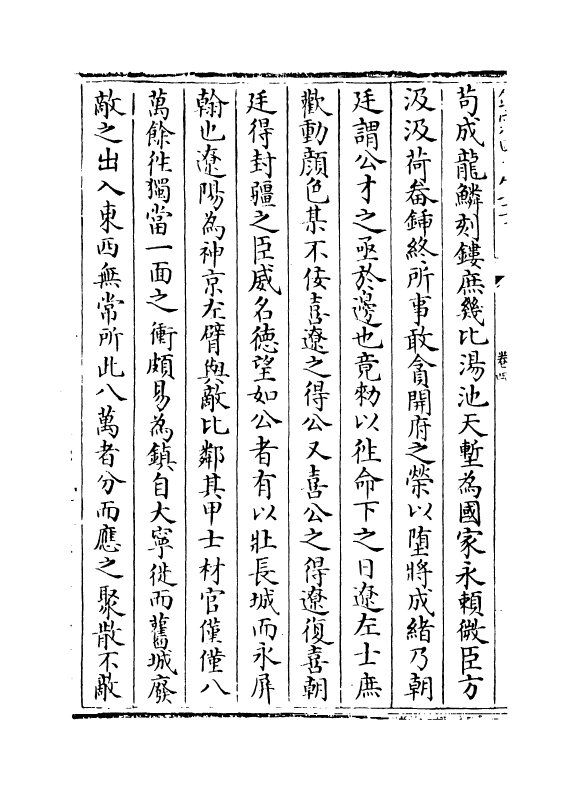 苟成龍鱗刻鏤庶幾比湯池天塹為國家永賴微臣方
汲汲荷畚鍤終所事敢貪開府之榮以堕將成緒乃朝
廷謂公才之亟於邊也竟勑以徃命下之日遼左士庶
歡動顔色某不佞喜遼之得公又喜公之得遼復喜朝
廷得封疆之臣威名德望如公者有以壯長城而永屏
翰也遼陽為神京左臂與敵比鄰其甲士材官僅僅八
萬餘徃獨當一面之衝頗易為鎮自大寧徙而舊城廢
敵之出入東西無常所此八萬者分而應之聚散不敵
卷四